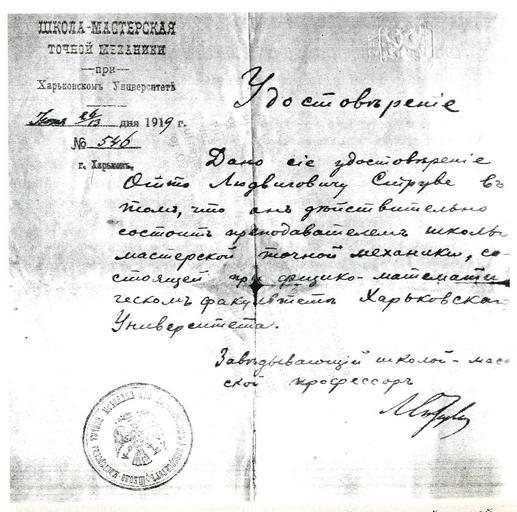 ШКОЛА-МАСТЕРСКАЯ
ТОЧНОЙ МЕХАНИКИ
—при—
Харьковскомъ Университетѣ
дня 1919 г.
№ 546
г. Харьковъ.
Удостовѣреніе
Дано сіе удостовѣреніе
Отто Людвиговичу Струве въ
томъ, что онъ дѣйствительно
состоитъ преподавателемъ школы
мастерской точной механики, со-
стоящей при физико-математи
ческомъ факультетѣ Харьковскаго
Университета.
Завѣдывающій школой-мас
ской профессоръ